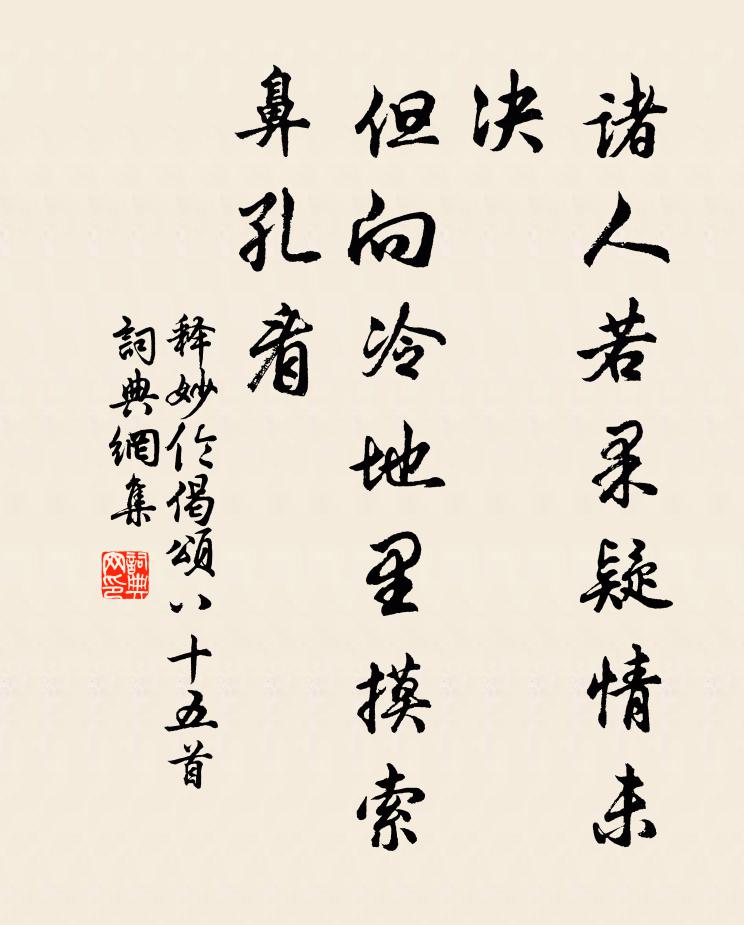 诸人若果疑情未
决
但向冷地里摸索
鼻孔看
释妙伦偈颂八十五首
詞典網集
詞典
网印